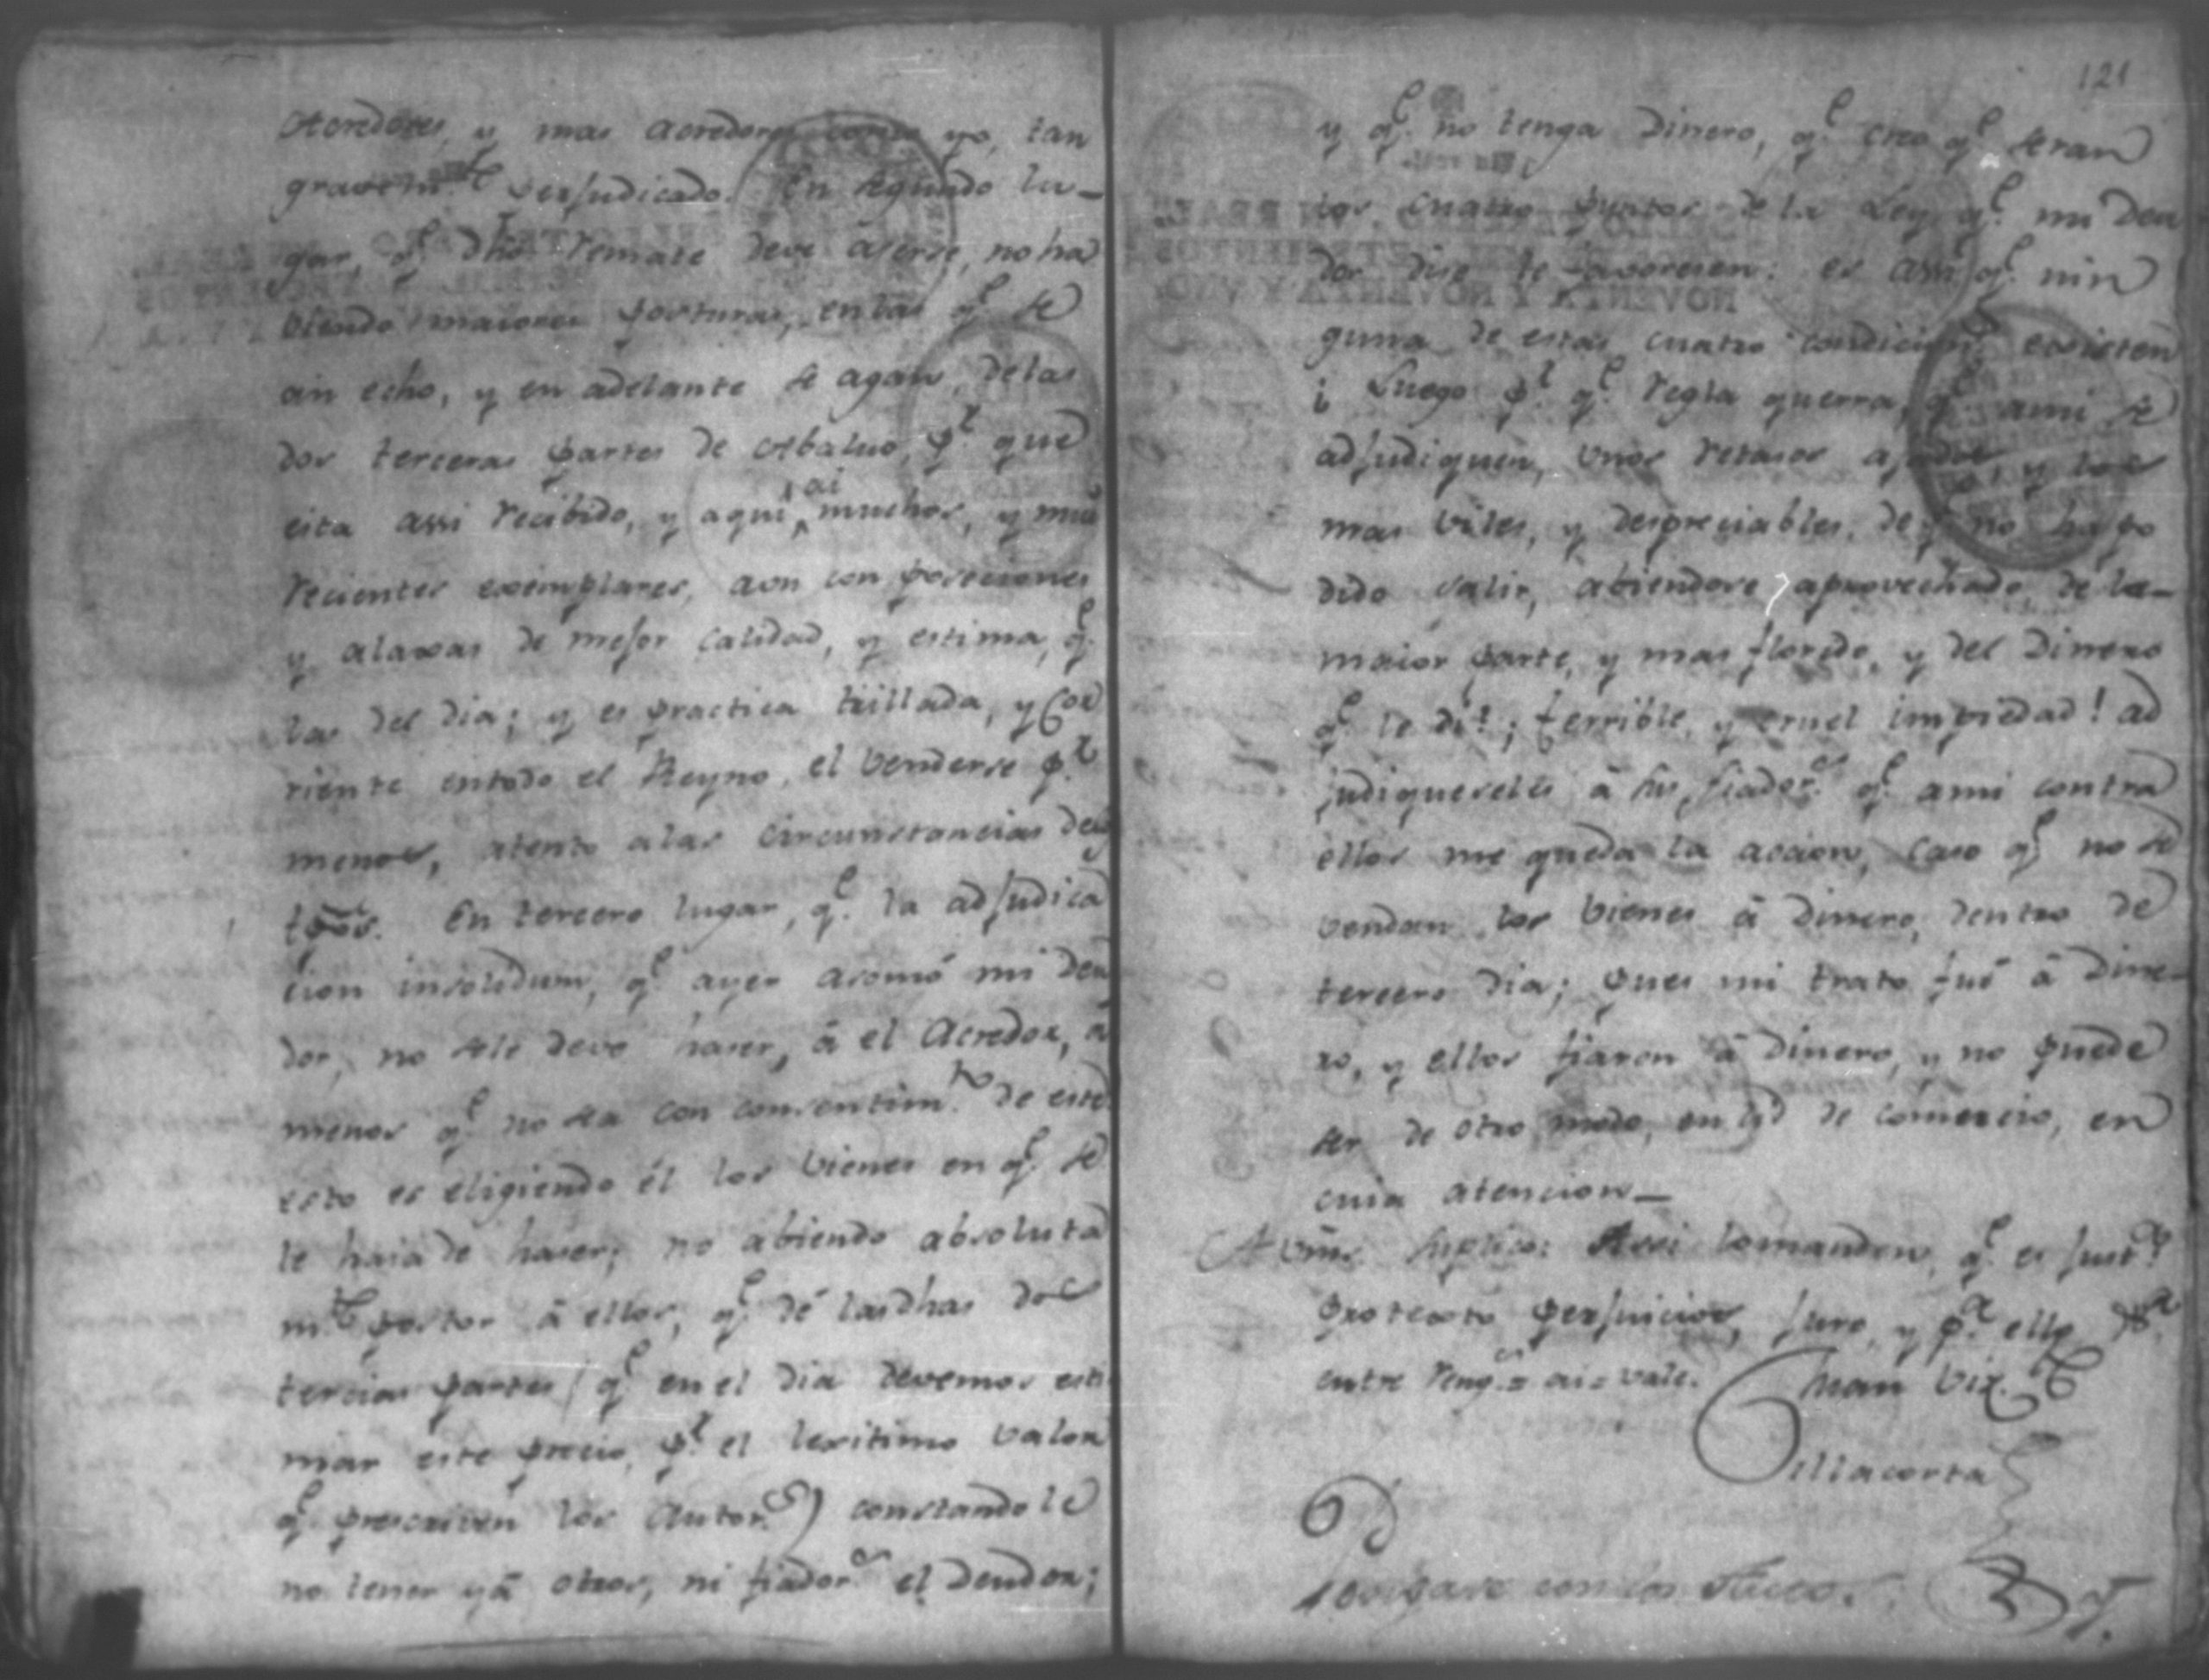 Acredores, y mas acredores como yo, tan
gravem.te perjudicado. En segundo lu-
gar, q.e dho Remate deve aserse, no ha
viendo maiores posturas, en las q.e se
an echo, y en adelante se agan, de las
dos terceras partes de Abaluo, p.r que
esta assi recibido, y aqui ai muchos, y mui
recientes exemplares, aon con poseciones
y alaxas de mejor calidad, y estima, q.e
las del dia; y es practica trillada, y cor
riente entodo el Reyno, el venderse p.r
menos, atento alas circunstancias de los
tpõs. En tercero lugar, q.e la adjudica
cion insolidum, q.e ayer asomó mi deu
dor, no sele deve haser, á el Acredor, á
menos q.e no sea con consentim.to de este
esto es eligiendo él los vienes en q.e se
le haia de haser; no abiendo absoluta
m.te postor á ellos, q.e dé las dhas dos
tercias partes (q.e en el dia devemos esti
mar este precio, p.r el lexitimo valor
q.e prescriven los Autor.s) constandole
no tener yá otros, ni fiador.s el deudor;
121
y q.e no tenga Dinero, q.e creo q.e seran
los cuatro puntos de la Ley q.e mi deu
dor dise le favoresen: es assi q.e nin
guna de estas cuatro condicion.s existen
¿Luego p.r q.e regla querra, q.e ami se
adjudiquen, unos retasos y los
mas viles, y despreciables, de q.e no ha po
dido salir, abiendose aprovechado, de la
maior parte, y mas florido, y del Dinero
q.e le di?; terrible, y cruel impiedad! ad
judiqueseles á sus fiador.s q.e ami contra
ellos me queda la accion, caso q.e no se
vendan los vienes á Dinero, dentro de
tercero dia; pues mi trato fué á Dine-
ro, y ellos fiaron á Dinero, y no puede
ser de otro modo, en ld de comercio, en
cuia atencion_
A Vms. suplico: Assi lo manden, q.e es just.a
protexto perjuicios, juro, y p.a ello &.a
entre reng.s = ai = vale.
Juan Vix.te
Villacorta
Pd
Pongase con los Autos.